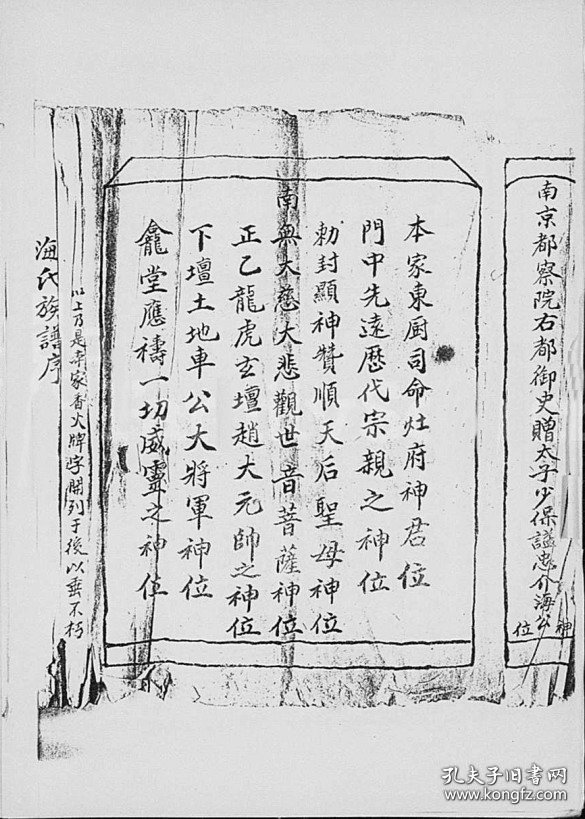 南京都察院右都御史贈太子少保謚忠介海公神位
本家東厨司命灶府神君位
門中先遠歷代宗親之神位
勅封顯神贊順天后聖母神位
南無大慈大悲觀世音菩薩神位
正乙龍虎玄壇趙大元帥之神位
下壇土地車公大將軍神位
龕堂應禱一切威靈之神位
以上乃是本家香火牌字開列于後以垂不朽
海氏族譜序
孔夫子旧书网
www.kongfz.com